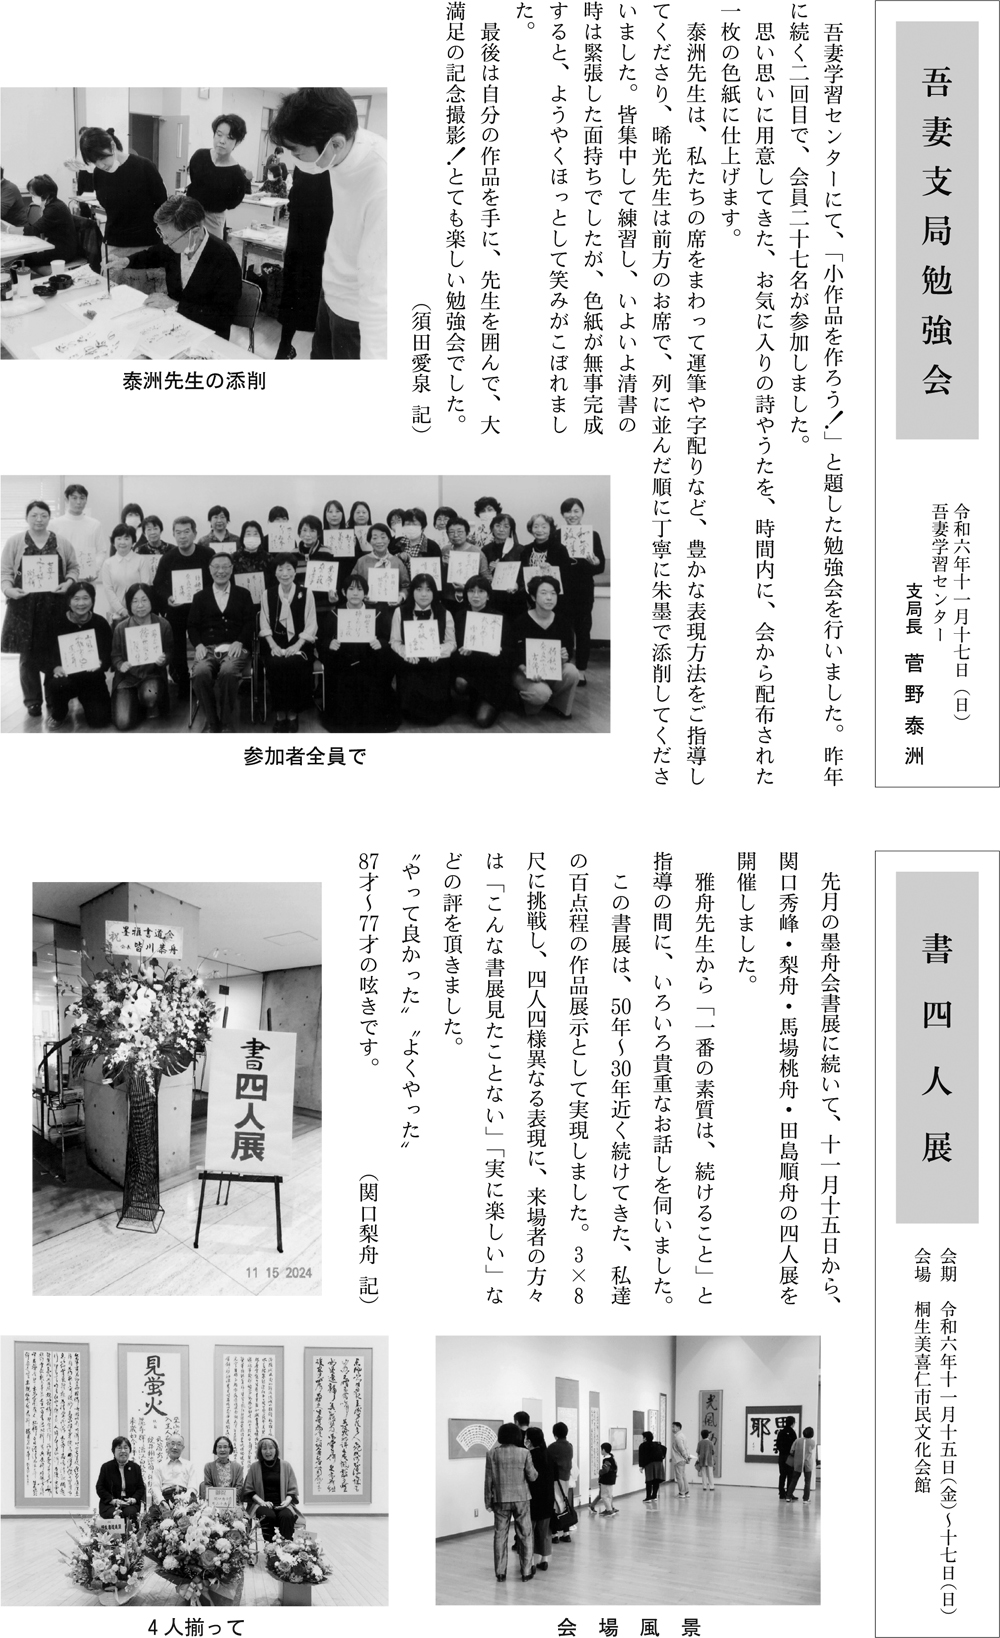 吾妻支局勉強会
令和六年十一月十七日（日）
吾妻学習センター
支局長　菅野泰洲
　吾妻学習センターにて、「小作品を作ろう！」と題した勉強会を行いました。昨年
に続く二回目で、会員二十七名が参加しました。
　思い思いに用意してきた、お気に入りの詩やうたを、時間内に、会から配布された
一枚の色紙に仕上げます。
　泰洲先生は、私たちの席をまわって運筆や字配りなど、豊かな表現方法をご指導し
てくださり、晞光先生は前方のお席で、列に並んだ順に丁寧に朱墨で添削してくださ
いました。皆集中して練習し、いよいよ清書の
時は緊張した面持ちでしたが、色紙が無事完成
すると、ようやくほっとして笑みがこぼれまし
た。
　最後は自分の作品を手に、先生を囲んで、大
満足の記念撮影！とても楽しい勉強会でした。
（須田愛泉 記）
泰洲先生の添削
参加者全員で
書四人展
会期　令和六年十一月十五日（金）～十七日（日）
会場　桐生美喜仁市民文化会館
　先月の墨舟会書展に続いて、十一月十五日から、
関口秀峰・梨舟・馬場桃舟・田島順舟の四人展を
開催しました。
　雅舟先生から「一番の素質は、続けること」と
指導の間に、いろいろ貴重なお話しを伺いました。
　この書展は、50年～30年近く続けてきた、私達
の百点程の作品展示として実現しました。3×8
尺に挑戦し、四人四様異なる表現に、来場者の方々
は「こんな書展見たことない」「実に楽しい」な
どの評を頂きました。
〝やって良かった〟〝よくやった〟
87才～77才の呟きです。
（関口梨舟 記）
祝
墨雅書道会
書四人展
11 15 2024
見蛍火
光風
4人揃って
会場風景